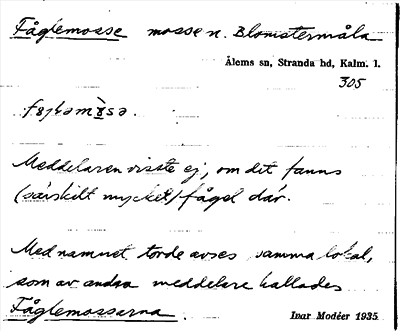 Fåglemosse mosse n. Blomstermåla
Ålems sn, Stranda hd, Kalm. l.
305
Meddelaren visste ej, om det fanns
(särskilt mycket) fågel där.
Med namnet torde avses samma lokal,
som av andra meddelare kallades
Fåglemossarna.
Ivar Modéer 1935.